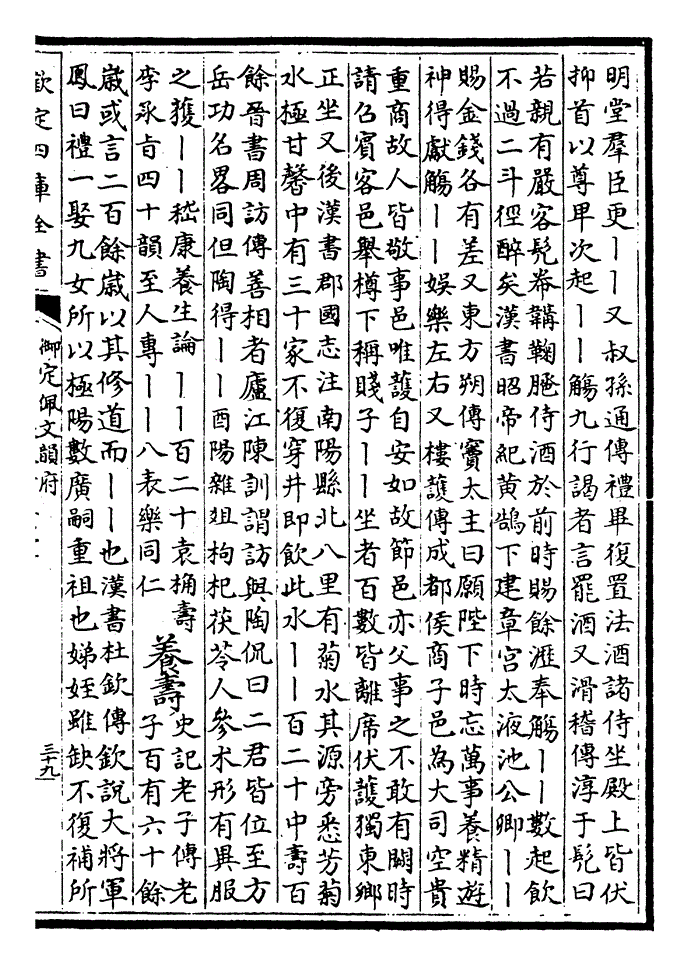 明堂羣臣更丨丨又叔孫通傳禮畢復置法酒諸侍坐殿上皆伏
抑首以尊卑次起丨丨觴九行謁者言罷酒又滑稽傳淳于髠曰
若親有嚴容髠帣韝鞠䠆侍酒於前時賜餘瀝奉觴丨丨數起飲
不過二斗徑醉矣漢書昭帝紀黄鵠下建章宫太液池公卿丨丨
賜金錢各有差又東方朔傳竇太主曰願陛下時忘萬事養精遊
神得獻觴丨丨娛樂左右又樓護傳成都侯商子邑為大司空貴
重商故人皆敬事邑唯護自安如故節邑亦父事之不敢有闕時
請召賓客邑舉樽下稱賤子丨丨坐者百數皆離席伏護獨東鄉
正坐又後漢書郡國志注南陽縣北八里有菊水其源旁悉芳菊
水極甘馨中有三十家不復穿井即飲此水丨丨百二十中壽百
餘晉書周訪傳善相者廬江陳訓謂訪與陶侃曰二君皆位至方
岳功名畧同但陶得丨丨酉陽雜俎枸杞茯苓人參术形有異服
之獲丨丨嵇康養生論丨丨百二十袁桷壽
李承旨四十韻至人專丨丨八表樂同仁
養壽
史記老子傳老
子百有六十餘
歲或言二百餘歲以其修道而丨丨也漢書杜欽傳欽說大將軍
鳳曰禮一娶九女所以極陽數廣嗣重祖也娣姪雖缺不復補所
欽定四庫全書
御定佩文韻府
三十九